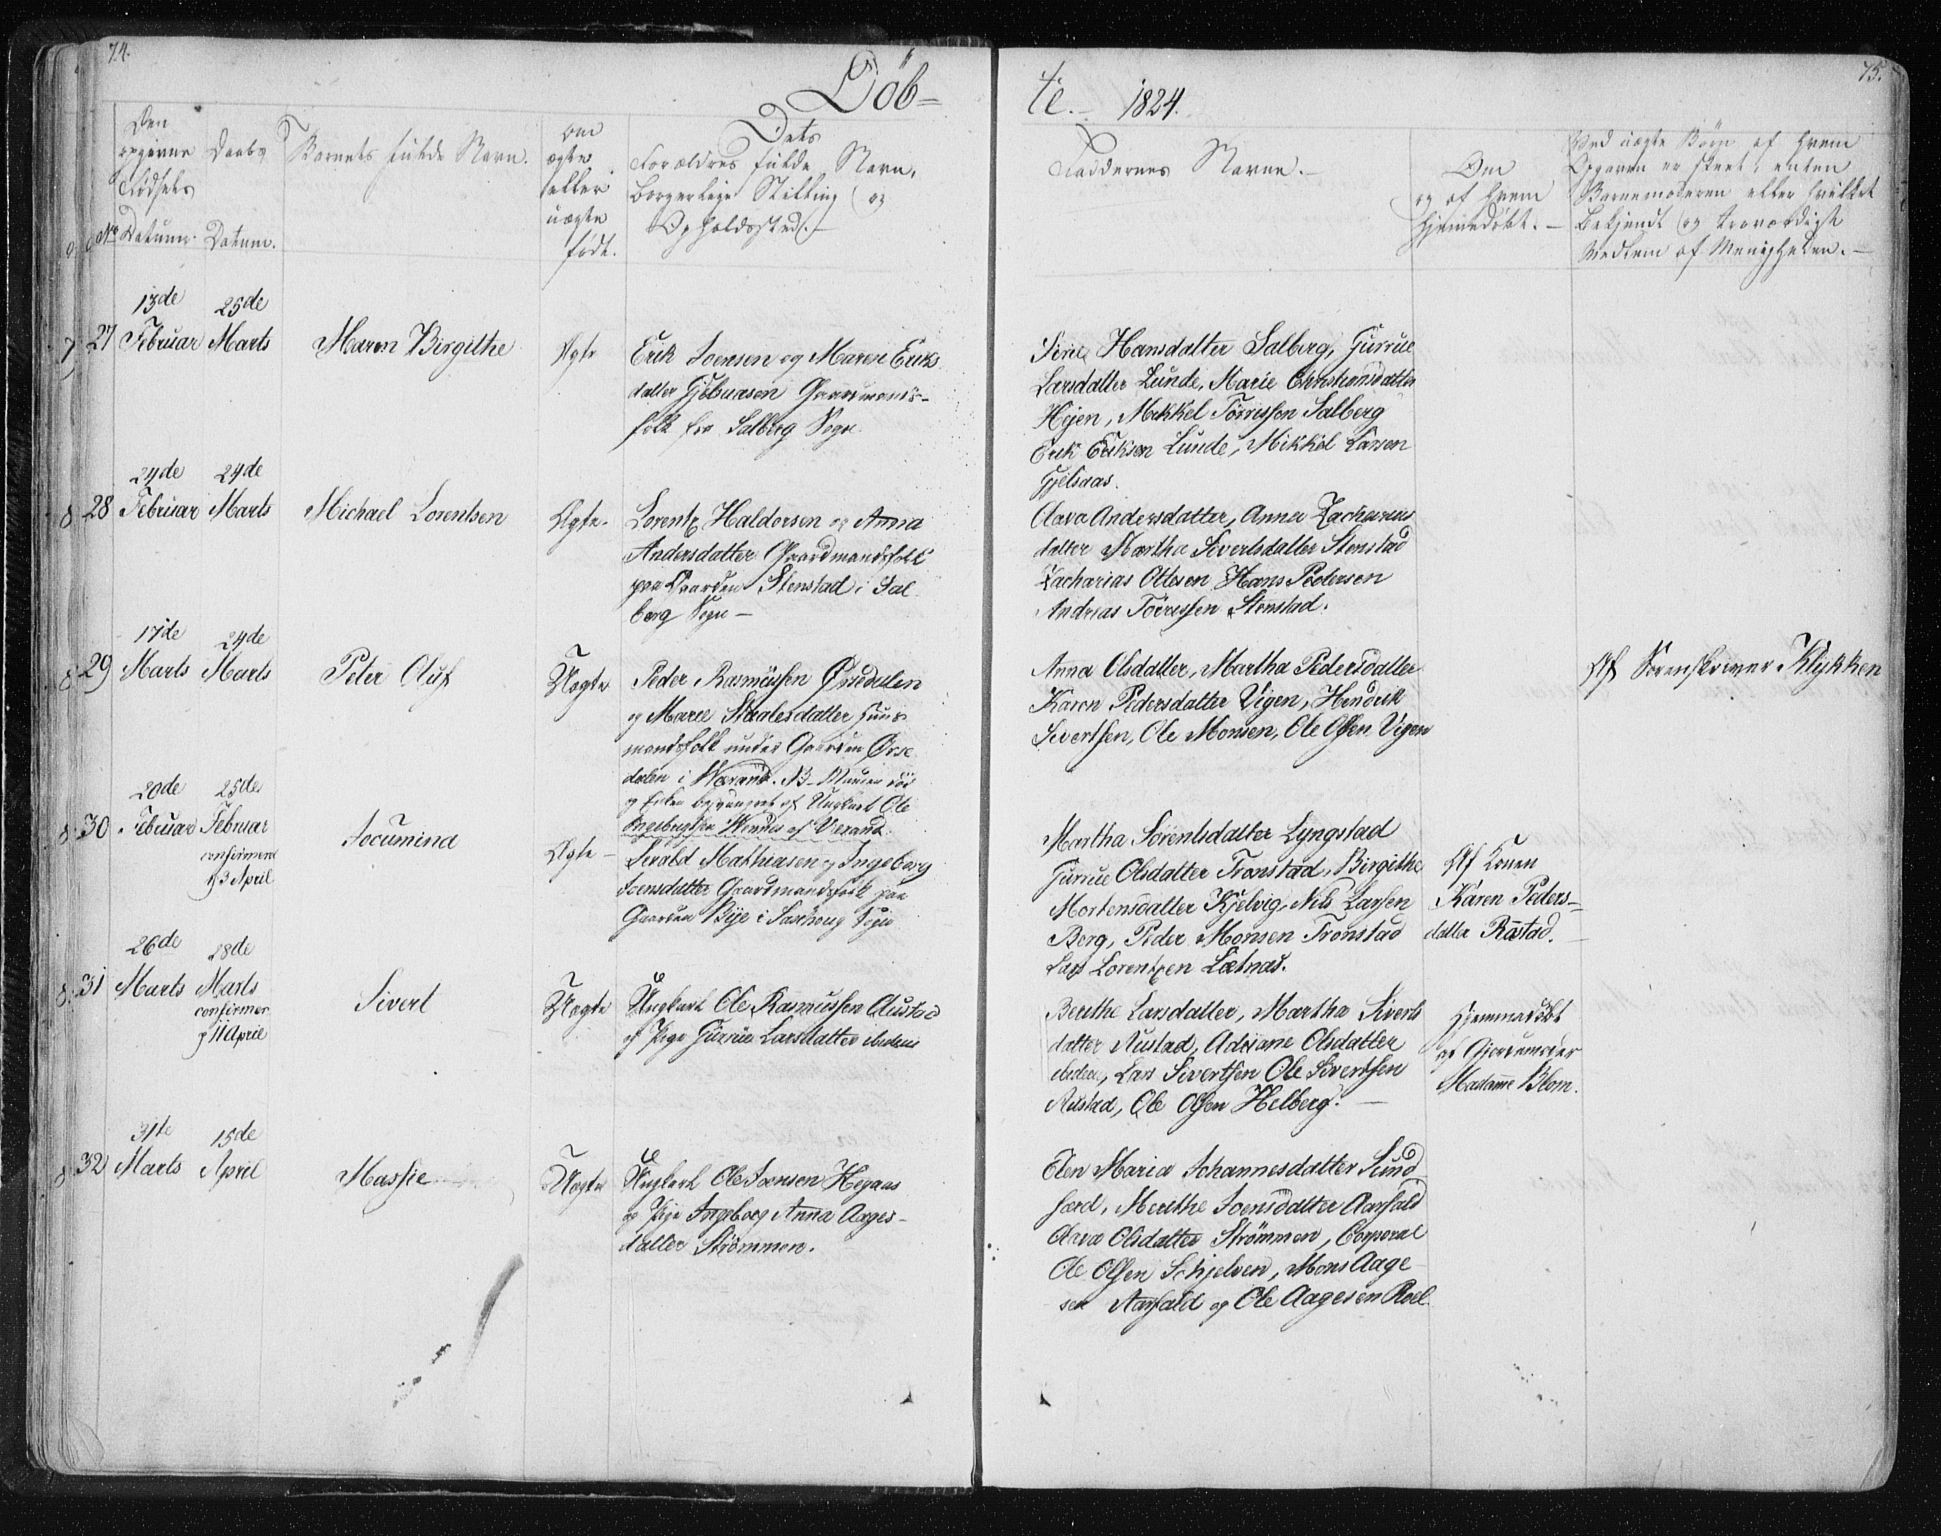 74.
Döb=
te. 1824.
75.
Den opgivne Födsels Datum.
Daabs Datum.
Barnets fulde Navn.
Om ægte eller uægte födt.
Dets Forældres fulde Navn, borgerlige Stilling og Opholdssted.
Faddernes Navne.
Om og af hvem hjemmedöbt.
Ved uægte Börn af hvem Opgaven er skeet, enten Barnemoderen eller hvilket bekjendt og troværdigt Medlem af Menigheden.
No
27
13de Februar
25de Marts
Maren Birgithe
Ægte
Erik Joensen og Maren Eriks
datter Gaardmands-
folk fra Salberg Sogn
Hansdatter Salberg, Gurrue
Larsdatter Lunde, Marie Christiansdatter
Hejen, Mikkel Törrissen Salberg
Erik Eriksen Lunde, Mikkel Larsen
Gjelsaas.
28
24de Februar
24de Marts
Michael Lorentsen
Ægte.
Lorentz Haldorsen og Anna
Andersdatter Gaardmandsfolk
paa Gaarden Stenstad i Sal
berg Sogn
Andersdatter, Anna Zacharias
datter Martha Sivertsdatter Stenstad
Zacharias Ottesen Hans Pedersen
Andreas Törrissen Stenstad.
29
17de Marts
24de Marts
Peter Oluf
Uægte
Peder Rasmussen Örsedalen
og Maree Staalesdatter Huus
mandsfolk under Gaarden Örse
dalen i Værand. NB
og Enken besvangret af Ungkarl Ole
af Værand.
Anna Olsdatter, Martha Pedersdatter
Karen Pedersdatter Vigen, Hendrik
Sivertsen, Ole Monsen, Ole Olsen Vigen
Af Sorenskriver Klykken
30
20de Februar
25de Februar
confirmeret
d 3 April
Jocumina
Ægte
Sivald Mathiasen og Ingeborg
Joensdatter Gaardmandsfolk paa
Gaarden Bye i Saxhoug Sogn
Martha Lorentsdatter Lyngstad
Gurrue Olsdatter Tronstad, Birgithe
Mortensdatter Kjelvig, Nils Larsen
Berg, Peder Monsen Tronstad
Lars Lorentzen Lætnas.
Af Konen
Karen Peders-
datter Rostad.
31
26de Marts
28de Marts
confirmer
d 11 April
Sivert
Uægte
Ungkarl Ole Rasmussen Austad
og Pige Gurrue Larsdatter ibidem
Berithe Larsdatter, Martha Siverts
datter Austad, Adriane Olsdatter
ibidem, Lars Sivertsen Ole Sivertsen
Austad, Ole Olsen Helberg.
Hjemmedöbt
af Gjordemoder
Madame Blom.
32
31te Marts
15de April
Massie
Uægte
Ungkarl Ole Joensen Hegaas
og Pige Ingeborg Anna Aages-
datter Strömmen.
Elen Maria Johannesdatter Sund
færd, Merethe Joensdatter Aarfald
Olsdatter Strömmen, Corporal
Ole Olsen Schjelven, Mons Aage
sen Aarfald og Ole Aagesen Roel.